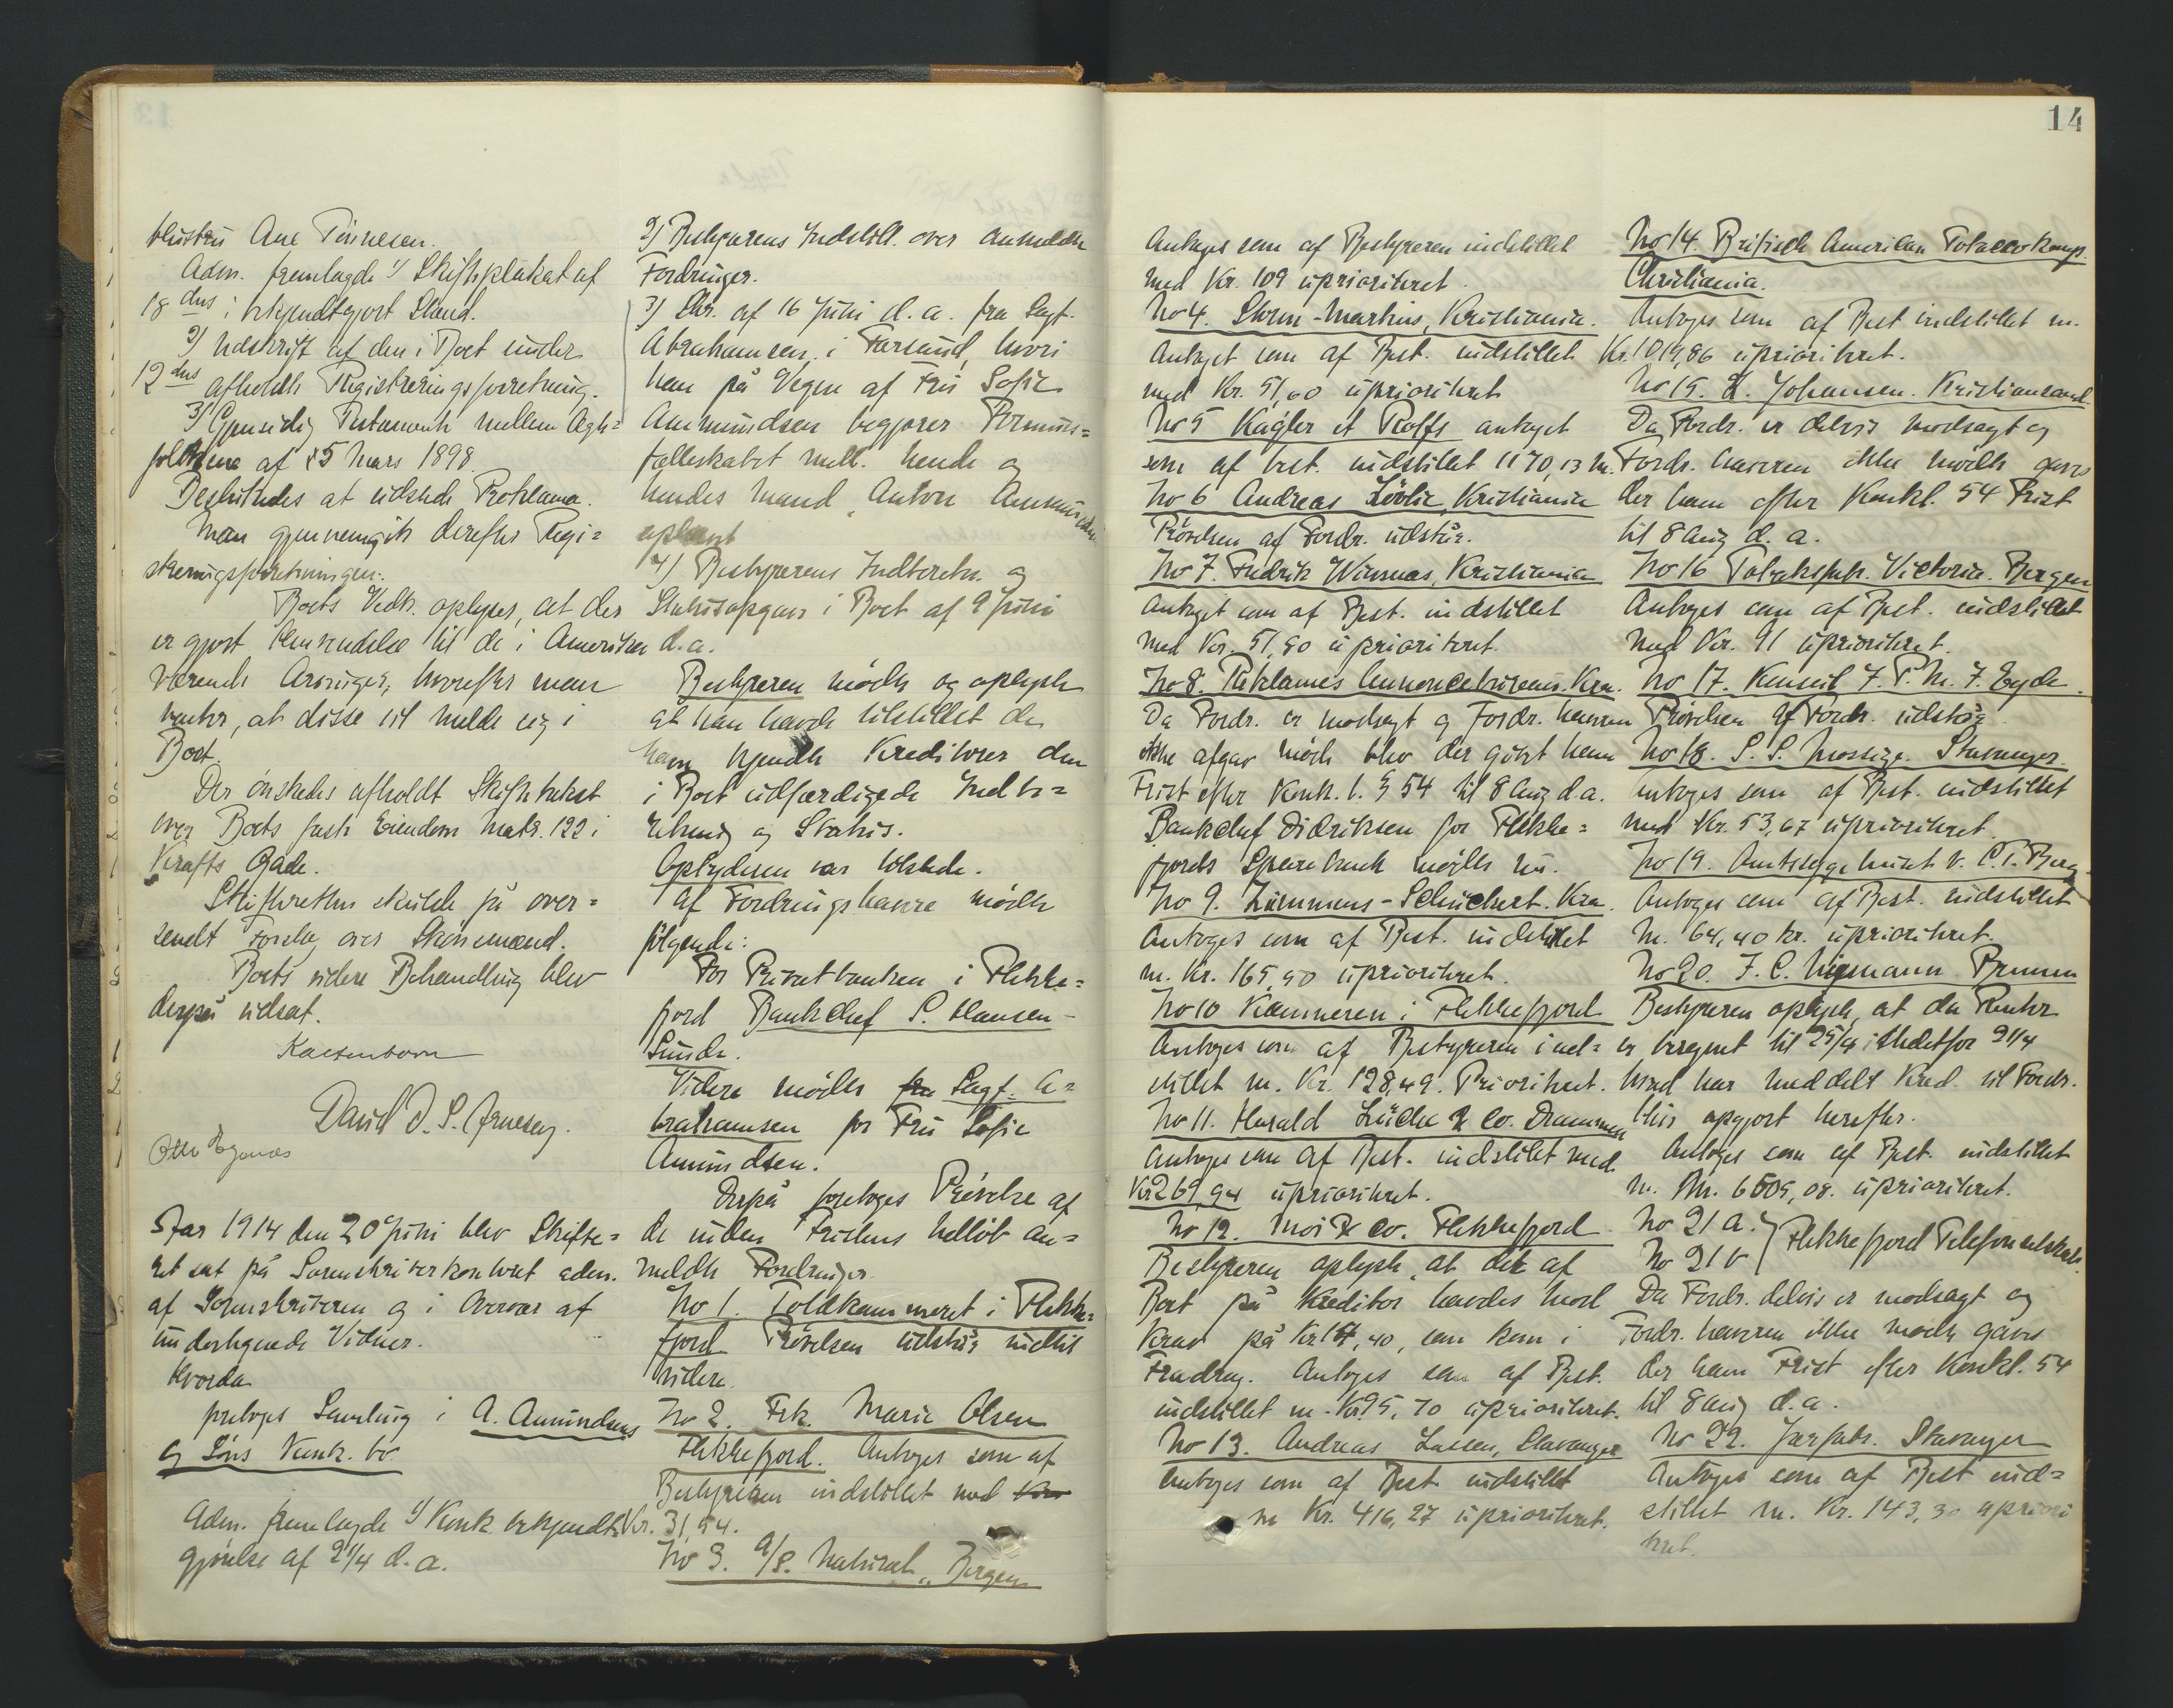 14
hustru Ane Tönnesen.
Adm. fremlagde 1/ Skifteplakat af
18 dns i bekjendtgjort Stand.
2/ Udskrift af den i Boet under
12 dns afholdte Registreringsforretning.
3/ Gjensidig Testamente mellem Ægte=
folkene af 25 Mars 1898.
Besluttedes at udstede Proklama.
Man gjennemgik derefter Regi=
streringsforretningen.
Boets Vedk. oplyser, at der
er gjort Henvendelse til de i Amerika
værende Arvinger, hvorefter man
venter, at disse vil melde sig i
Boet.
Der önskedes afholdt Skiftetakst
over Boets faste Eiendom Matr. 122 i
Krafts Gade.
Skifteretten skulde få over=
sendt Forslag over Skjönsmænd.
Boets videre Behandling blev
derpå udsat.
Kaltenborn
David D. S. Arnesen.
Otto
Aar 1914 den 20 Juni blev Skifte=
ret sat på Sorenskriverkontoret adm.
af Sorenskriveren og i Overvær af
undertegnede Vidner.
Hvorda
foretoges Samling i A. Amundsens
og Söns Konk. bo.
Adm. fremlagde 1/ Konk. bekjendt=
gjörelse af 21/4 d. a.
2/ Bestyrerens Indstill. over anmeldte
Fordringer.
3/ Skr. af 16 Juni d. a. fra Sagf.
Abrahamsen i Farsund, hvori
han på Vegne af Fru Sofie
Ammundsen begjærer Formues=
fælleskabet mell. hende og
hendes Mand, Anton Ammundsen
ophævet
4/ Bestyrerens Indberetn. og
Statusopgave i Boet af 9 Juni
d. a.
Bestyreren mödte og oplyste
at han havde tilstillet de
ham kjendte Kreditorer den
i Boet udfærdigede Indbe=
retning og Status.
Opbyderen var tilstede.
Af Fordringshavere mödte
fölgende:
For Privatbanken i Flekke=
fjord Bankchef S. Hansen-
Sunde.
Videre mödte fra Sagf. A=
brahamsen for Fru Sofie
Amundsen.
Derpå foretoges Prövelse af
de inden Fristens Udlöb an=
meldte Fordringer.
No 1. Toldkammeret i Flekke=
fjord Prövelsen udstår indtil
videre.
No 2. Frk. Marie Olsen
Flekkefjord. Antoges som af
Bestyreren indstillet med
Kr. 31,94.
No 3. A/S. Natural, Bergen
Antoges som af Bestyreren indstillet
med Kr. 109 uprioriteret.
No 4. Steen-Martins, Kristiania.
Antoget som af Best. indstillet
med Kr. 51,60 uprioriteret
No 5 Kagler et Rolffs antoget
som af best. indstillet 1170,13 M.
No 6 Andreas Lövlie, Kristiania
Prövelsen af Fordr. udstår.
No 7. Fredrik Winsnes, Kristiania
Antoget som af Best. indstillet
med Kr. 51,90 uprioriteret.
No 8. Reklames Annoncebureau. Kra.
Da Fordr. er modsagt og Fordr. haveren
ikke afgav möde blev der givet ham
Frist efter Konk. l. § 54 til 8 Aug d. a.
Bankchef Didriksen for Flekke=
fjords Sparebank mödte nu.
No 9. Siemmens-Schuchert. Kra.
Antoges som af Best. indstillet
m. Kr. 165,90 uprioriteret.
No 10 Kæmneren i Flekkefjord
Antoges som af Bestyreren ind=
stillet m. Kr. 128,49. Prioriteret.
No 11. Harald Lücke & Co. Drammen
Antoges som af Best. indstillet med
Kr 269,94 uprioriteret.
No 12. Moi & Co. Flekkefjord
Bestyreren oplyste, at det af
Boet på Kreditor havdes Mod
Krav på Kr 164,40, som kom i
Fradrag. Antoges som af Best.
indstillet m. Kr 95,70 uprioriteret.
No 13. Andreas Lassen, Stavanger
Antoges som af Best indstillet
m Kr. 416,27 uprioriteret.
No 14. British American Tobacco komp.
Christiania.
Antoges som af Best indstillet m.
Kr. 1019,86 uprioriteret.
No 15. L. Johansen. Kristiansand.
Da Fordr. er delvis modsagt og
Fordr. haveren ikke mödte gaves
der ham efter Konkl. 54 Frist
til 8 Aug d. a.
No 16 Tobaksfabr. Victoria. Bergen
Antoges som af Best. indstillet
med Kr. 91 uprioriteret.
No 17. Konseil J. P. M. F. Eyde.
Prövelsen af Fordr. udstår
No 18. S. S. Mossige. Stavanger.
Antoges som af Best. indstillet
med Kr. 53,67 uprioriteret.
No 19. Amtssygehuset v. C. T. Berg.
Antoges som af Best. indstillet
m. 64,40 kr. uprioriteret.
No 20. J. C. Wigmann Bremen
Bestyreren oplyste, at da Renter
er beregnet til 25/4 istedetfor 21/4
hvad har meddelt Kred. vil Fordr.
blis opgjort herefter.
Antoges som af Best. indstillet
m. Mr. 6605,08. uprioriteret.
No 21 a.
No 21 b } Flekkefjord Telefonselskab.
Da Fordr. delvis er modsagt og
Fordr. haveren ikke mödte gaves
der ham Frist efter Konkl. 54
til 8 Aug d. a.
No 22. Jærfabr. Stavanger
Antoges som af Best ind=
stillet m. Kr. 143,30 upriori
teret.